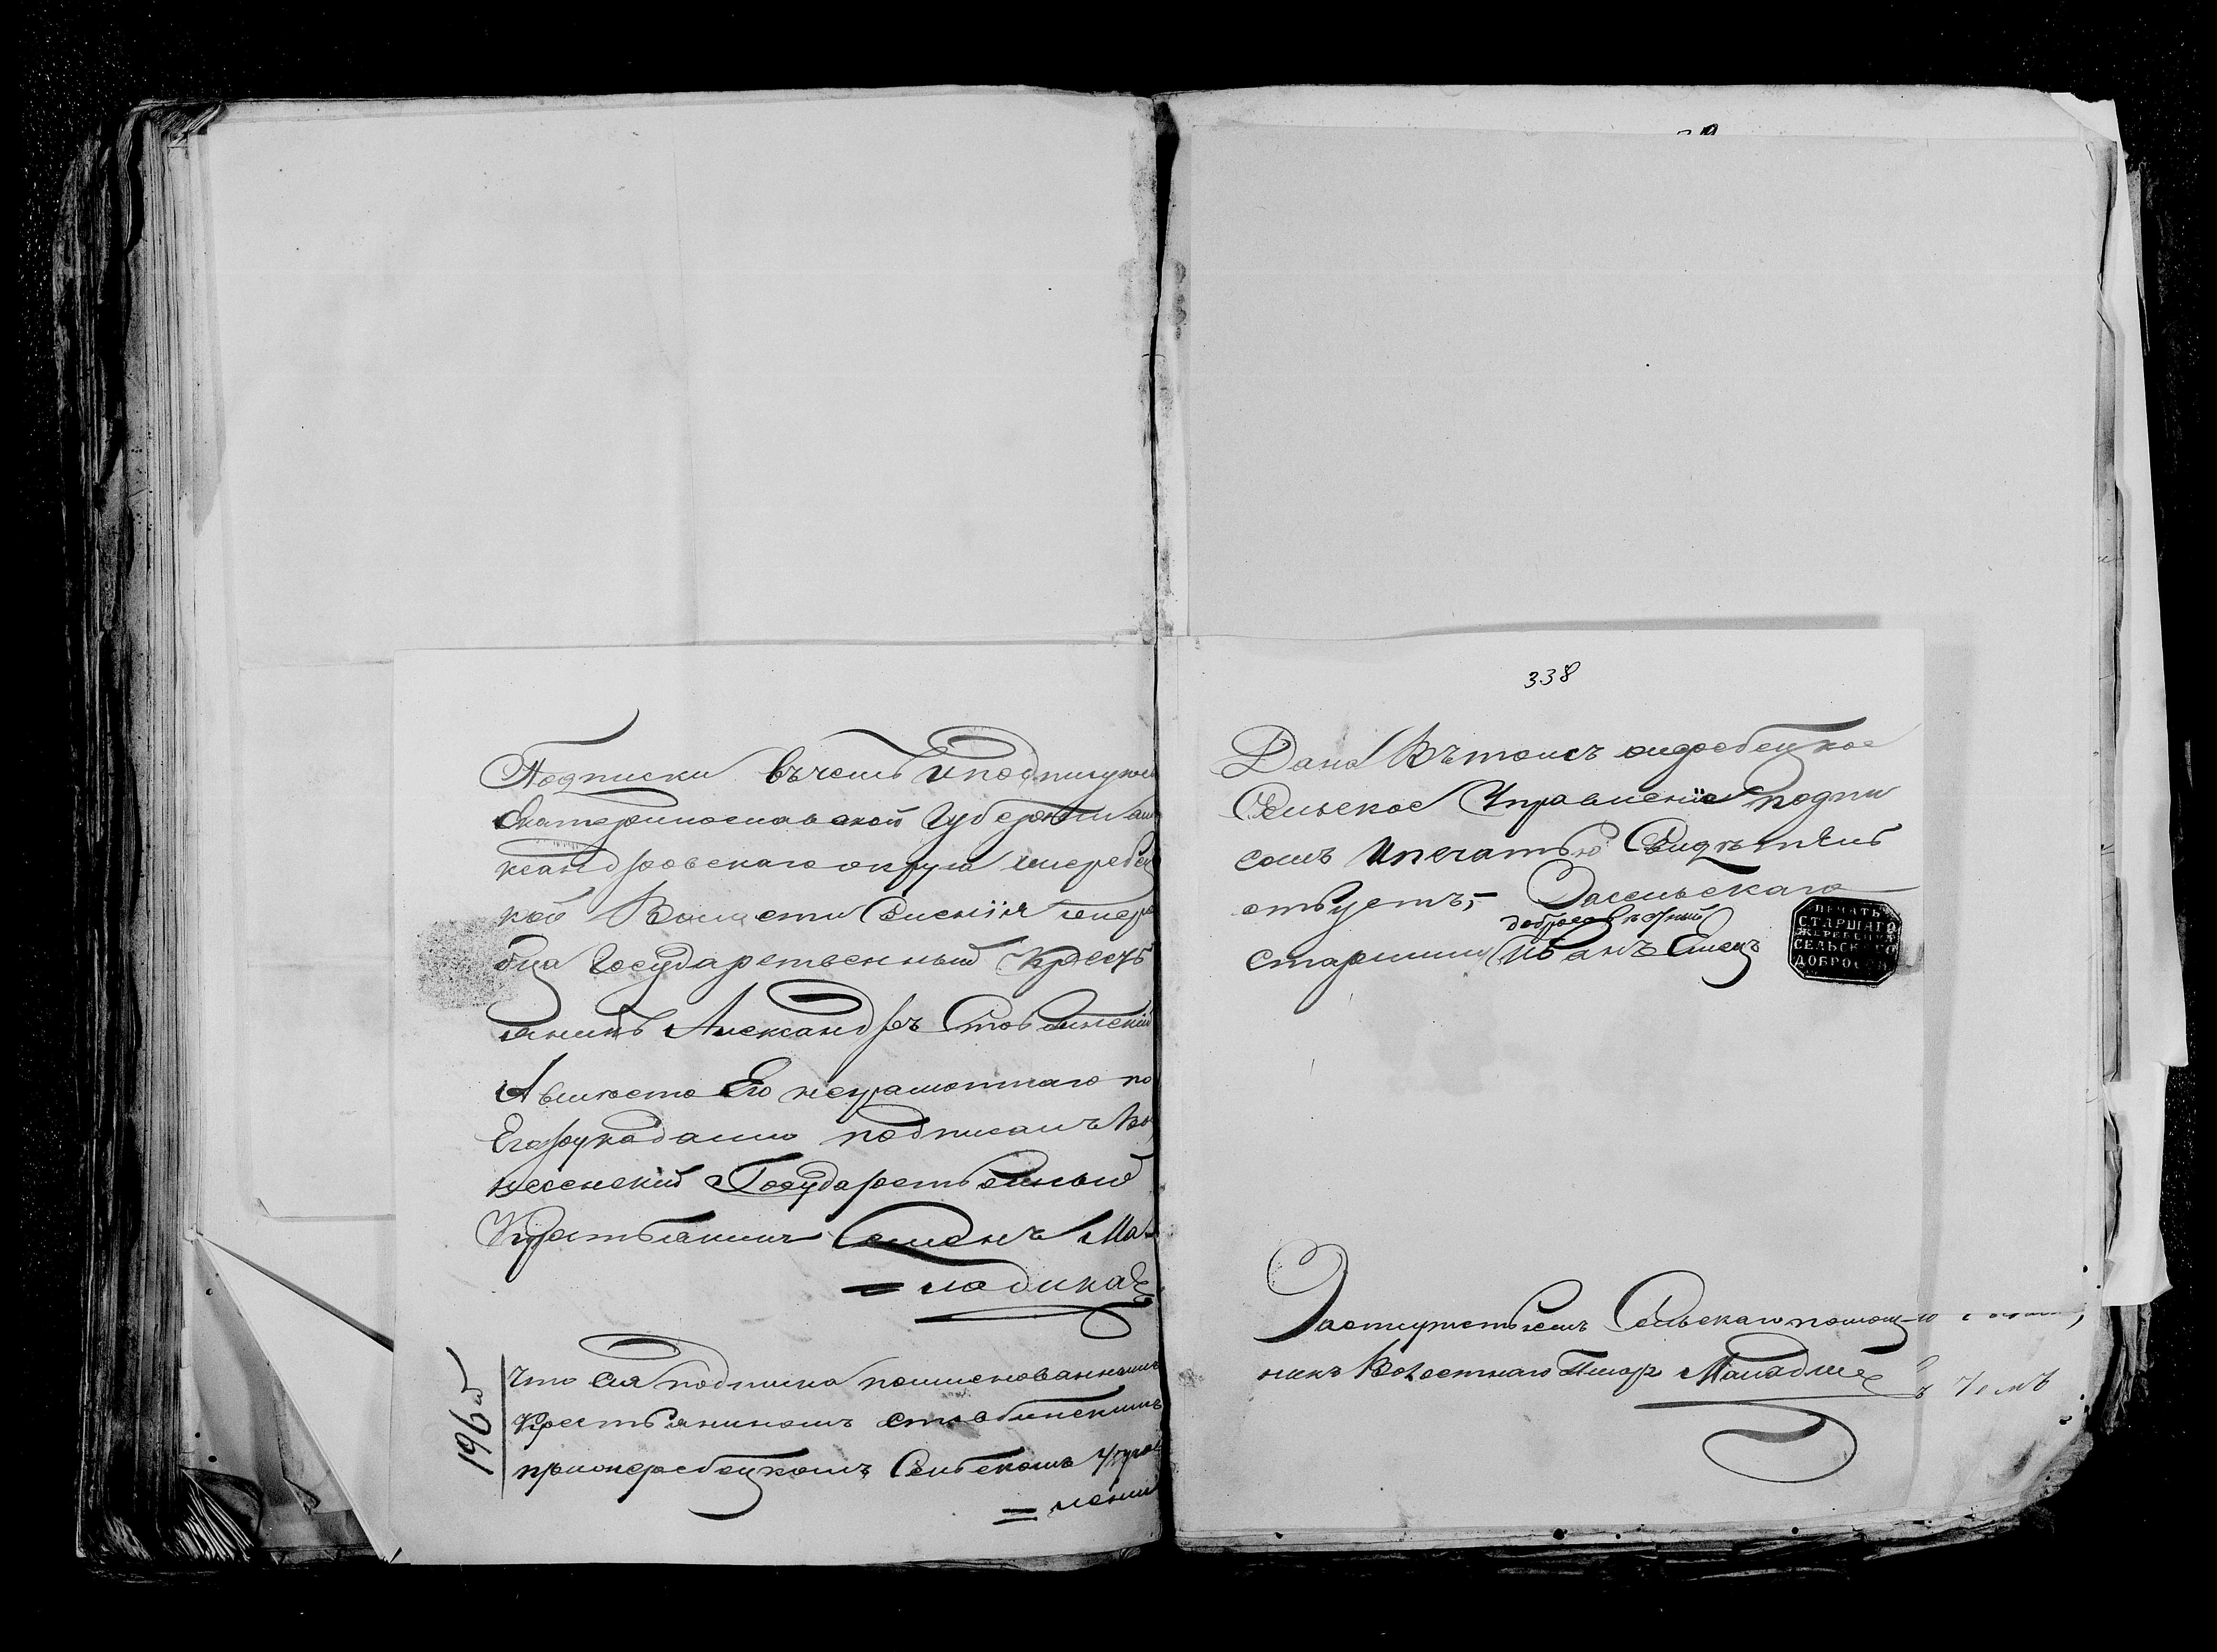 Подписки въ чемъ и подписуюсь
Екатеринославской Губерніи але
ксандровскаго округа жеребец
кой Волости Селенія жере
бца Государственный Кресть
янинъ Александръ Ставинскій
А вместо Его неграмотнаго по
Его рукоданию подписалъ Воз
несенский Государственный
Крестьянинъ Семенъ Ма
= ладика
196 об
Что сія подписка поименованнымъ
Крестьяниномъ ставинскимъ
при жеребецкомъ Сельскомъ Управ
= лении
338
Дана Въ томъ жеребецкое
Сельское Управленіе подпи
сомъ и печатью Свидѣтель
ствуетъ, За сельскаго
добросовѣстный
старшину Иванъ Емецъ
ПЕЧАТЬ
СТАРШАГО
ЖЕРЕБЕЦК
СЕЛЬСКАГО
ДОБРОСОВ
За отсутствіемъ Сельскаго помощ
никъ Волостнаго Писаря
ъ чемъ